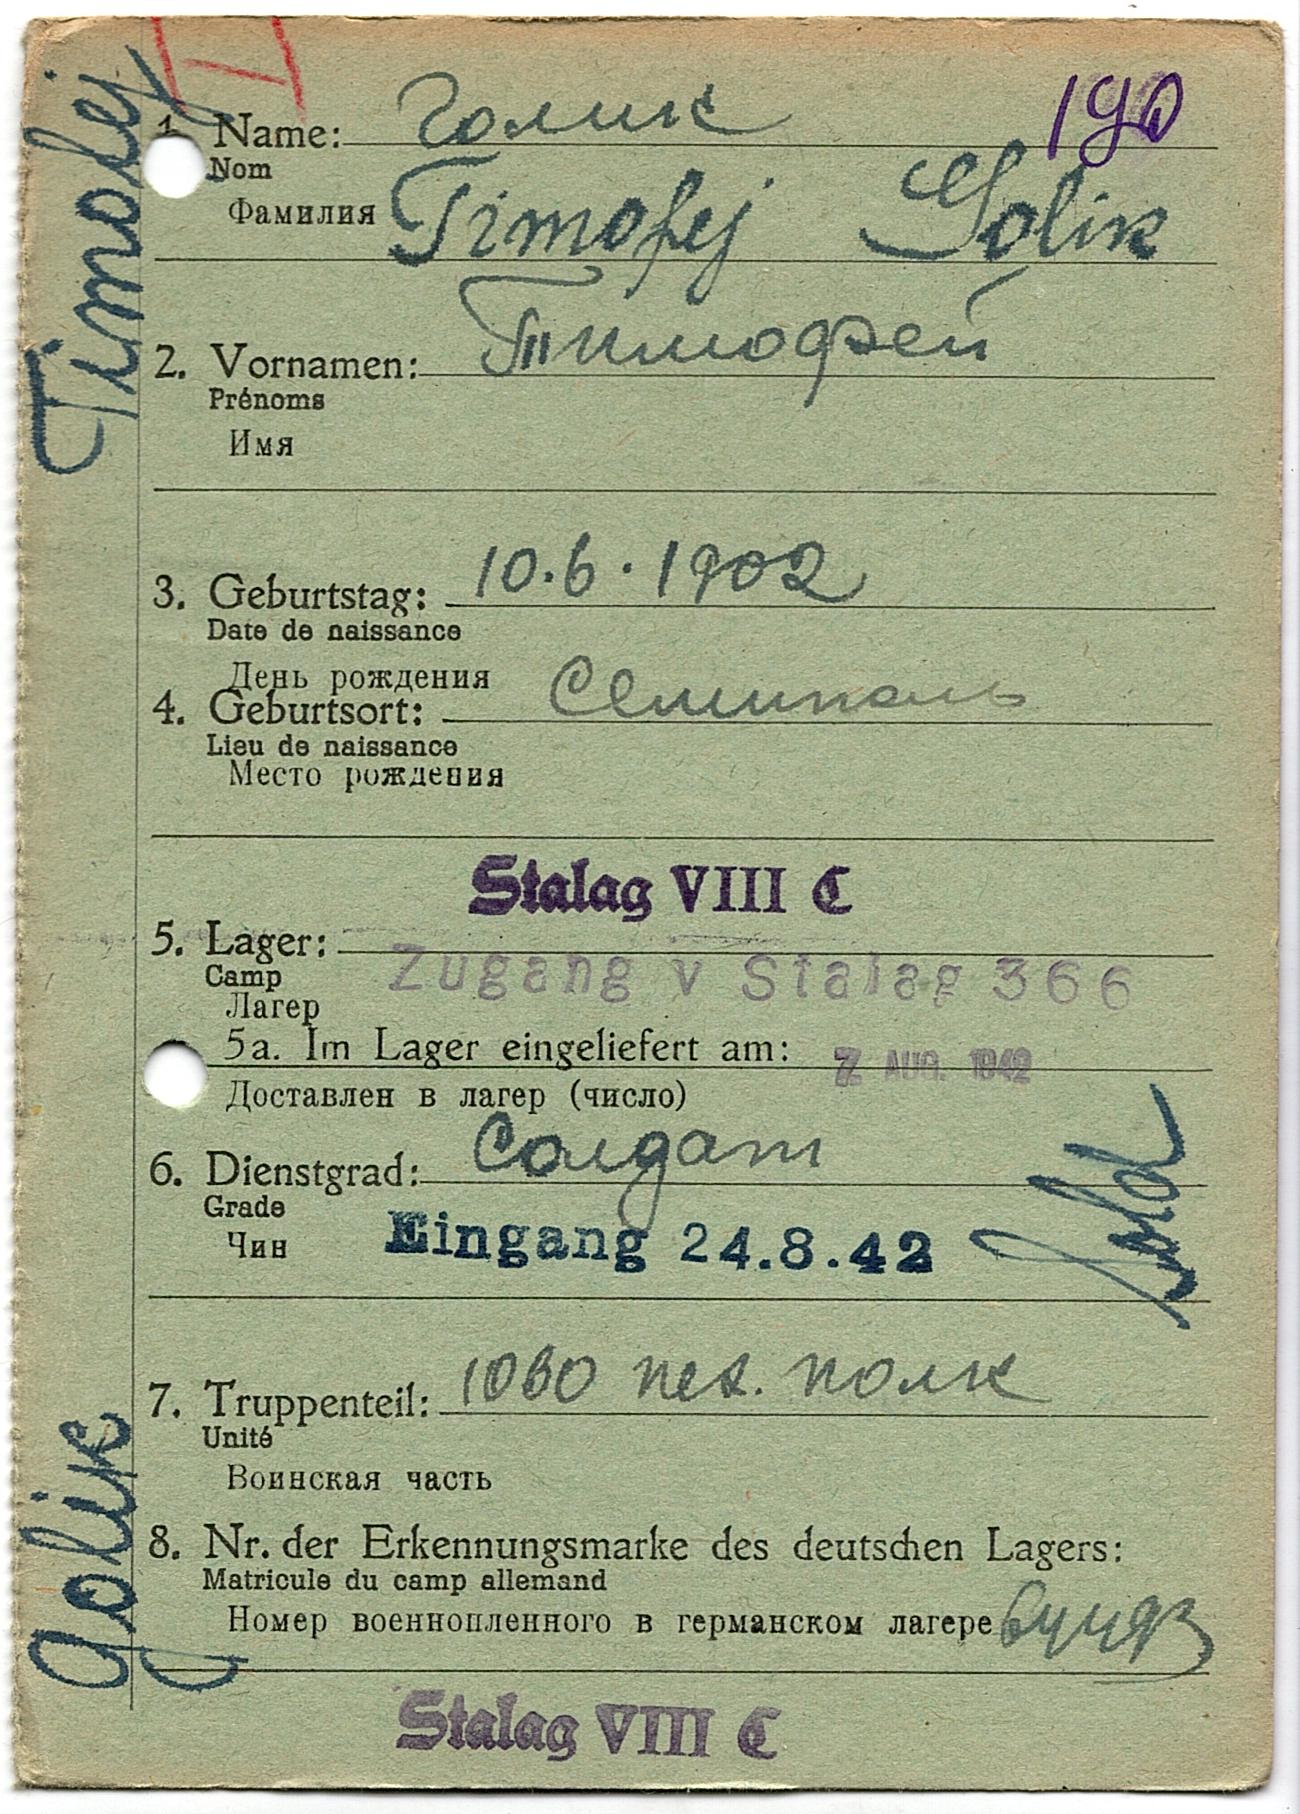 Timofej
Golik
190
1. Name: Голик
Nom
Фамилия Timofej Golik
2. Vornamen: Тимофей
Prénoms
Имя
3. Geburtstag: 10.6.1902
Date de naissance
День рождения
4. Geburtsort: Семиполь
Lieu de naissance
Место рождения
Stalag VIII C
5. Lager:
Camp
Zugang v Stalag 366
Лагер
5a. Im Lager eingeliefert am: 7. AUG. 1942
Доставлен в лагер (число)
6. Dienstgrad: Солдат
Grade
Чин Eingang 24.8.42
7. Truppenteil: полк
Unité
Воинская часть
8. Nr. der Erkennungsmarke des deutschen Lagers:
Matricule du camp allemand
Номер военнопленного в германском лагере
Stalag VIII C